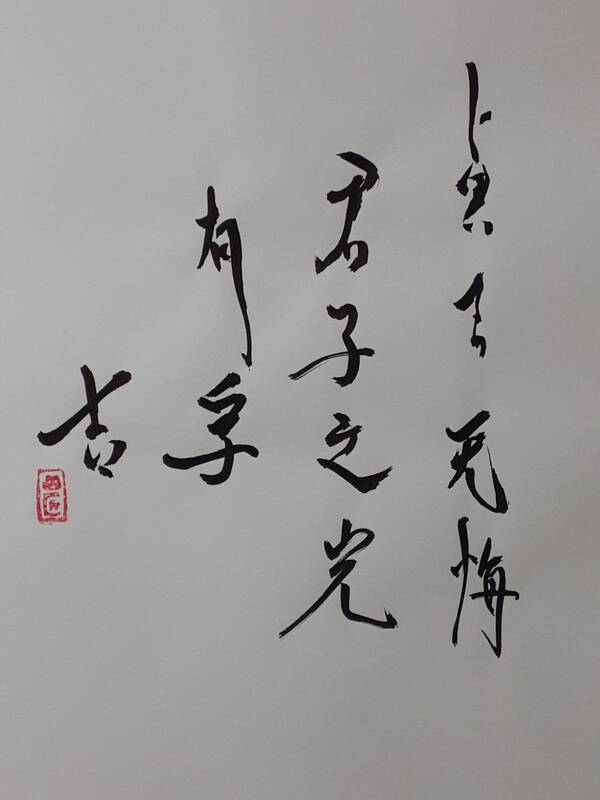 貞吉无悔
君子之光
有孚
吉